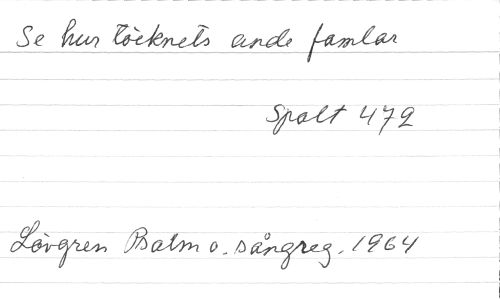 Se hur töcknets ande famlar
Spalt 472
Lövgren Psalm o. sångreg. 1964